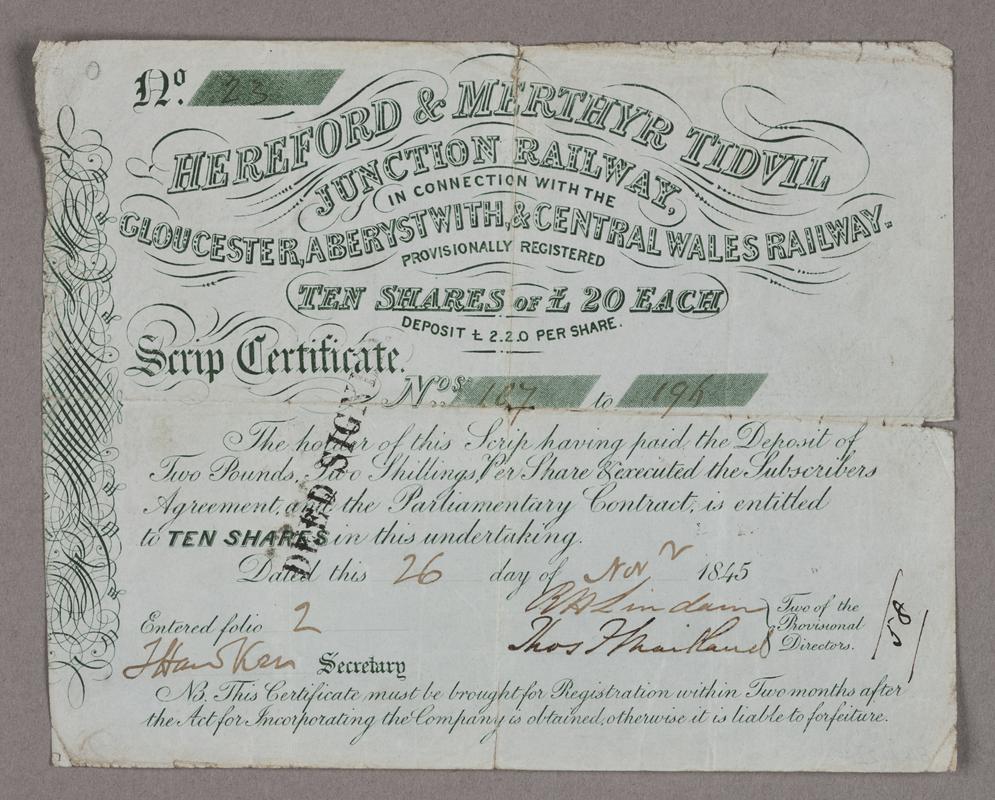 No. 23
HEREFORD & MERTHYR TIDVIL
JUNCTION RAILWAY,
IN CONNECTION WITH THE
GLOUCESTER, ABERYSTWITH, & CENTRAL WALES RAILWAY.
PROVISIONALLY REGISTERED
TEN SHARES OF £ 20 EACH
DEPOSIT £ 2.2.0 PER SHARE.
Scrip Certificate.
Nos. 187 to 196
DEED SIGNED
The holder of this Scrip having paid the Deposit of
Two Pounds, Two Shillings, Per Share & executed the Subscribers
Agreement, and the Parliamentary Contract, is entitled
to TEN SHARES in this undertaking.
Dated this 26 day of Novr 1845
Entered folio 2
Two of the
Provisional
Directors.
58
Secretary
NB. This Certificate must be brought for Registration within Two months after
the Act for Incorporating the Company is obtained, otherwise it is liable to forfeiture.